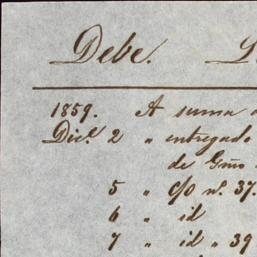 Debe.
1859. A suma
Dice. 2 " entregado
de Gmo
5 " c/o nº. 37.
6 " id
7 " id " 39